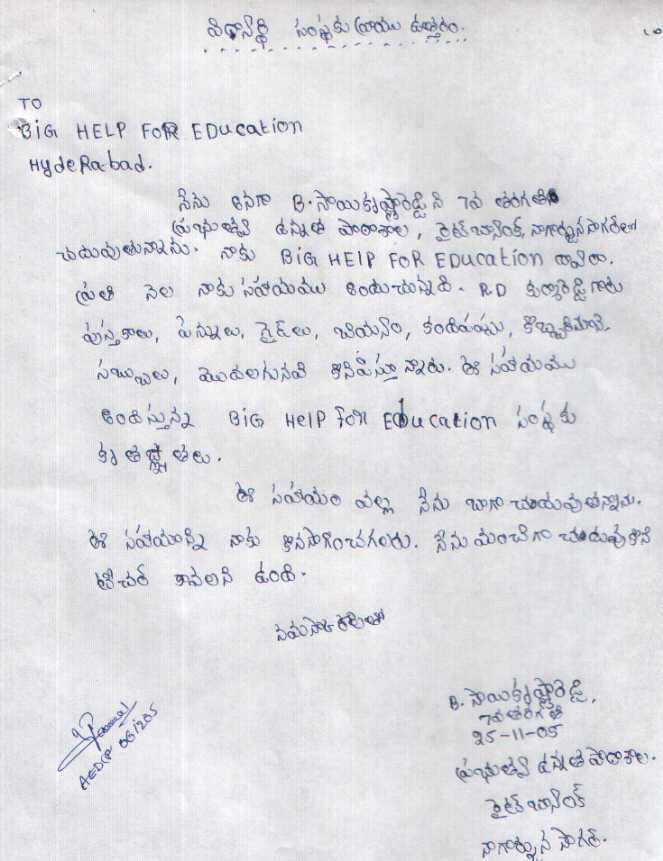 విద్యార్థి సంస్థకు వ్రాయు ఉత్తరం.
TO
BiG HELP FOR EDucation
HydeRabad.
నేను అనగా B. సాయికృష్ణారెడ్డి ని 7వ తరగతి
ప్రభుత్వ ఉన్నత పాఠశాల, రైట్ బ్యాంక్, నాగార్జున సాగర్‌లో
చదువుతున్నాను. నాకు BiG HELP FOR EDucation ద్వారా.
ప్రతి నెల నాకు సహాయము అందుచున్నది. RD కృష్ణారెడ్డి గారు
పుస్తకాలు, పెన్నులు, గైడ్‌లు, బియ్యం, కందిపప్పు, కొబ్బరినూనె
సబ్బులు, మొదలగునవి కొనిపిస్తూన్నారు. ఈ సహాయము
అందిస్తున్న BiG Help foR Education సంస్థకు
కృతజ్ఞతలు.
ఈ సహాయం వల్ల నేను బాగా చదువుతున్నాను.
ఈ సహాయాన్ని నాకు కొనసాగించగలరు. నేను మంచిగా చదువుకొని
టీచర్ కావాలని ఉంది.
నమస్కారాలతో
B. సాయికృష్ణారెడ్డి,
7వ తరగతి
25-11-05
ప్రభుత్వ ఉన్నత పాఠశాల.
రైట్ బ్యాంక్
నాగార్జున సాగర్.
06/205